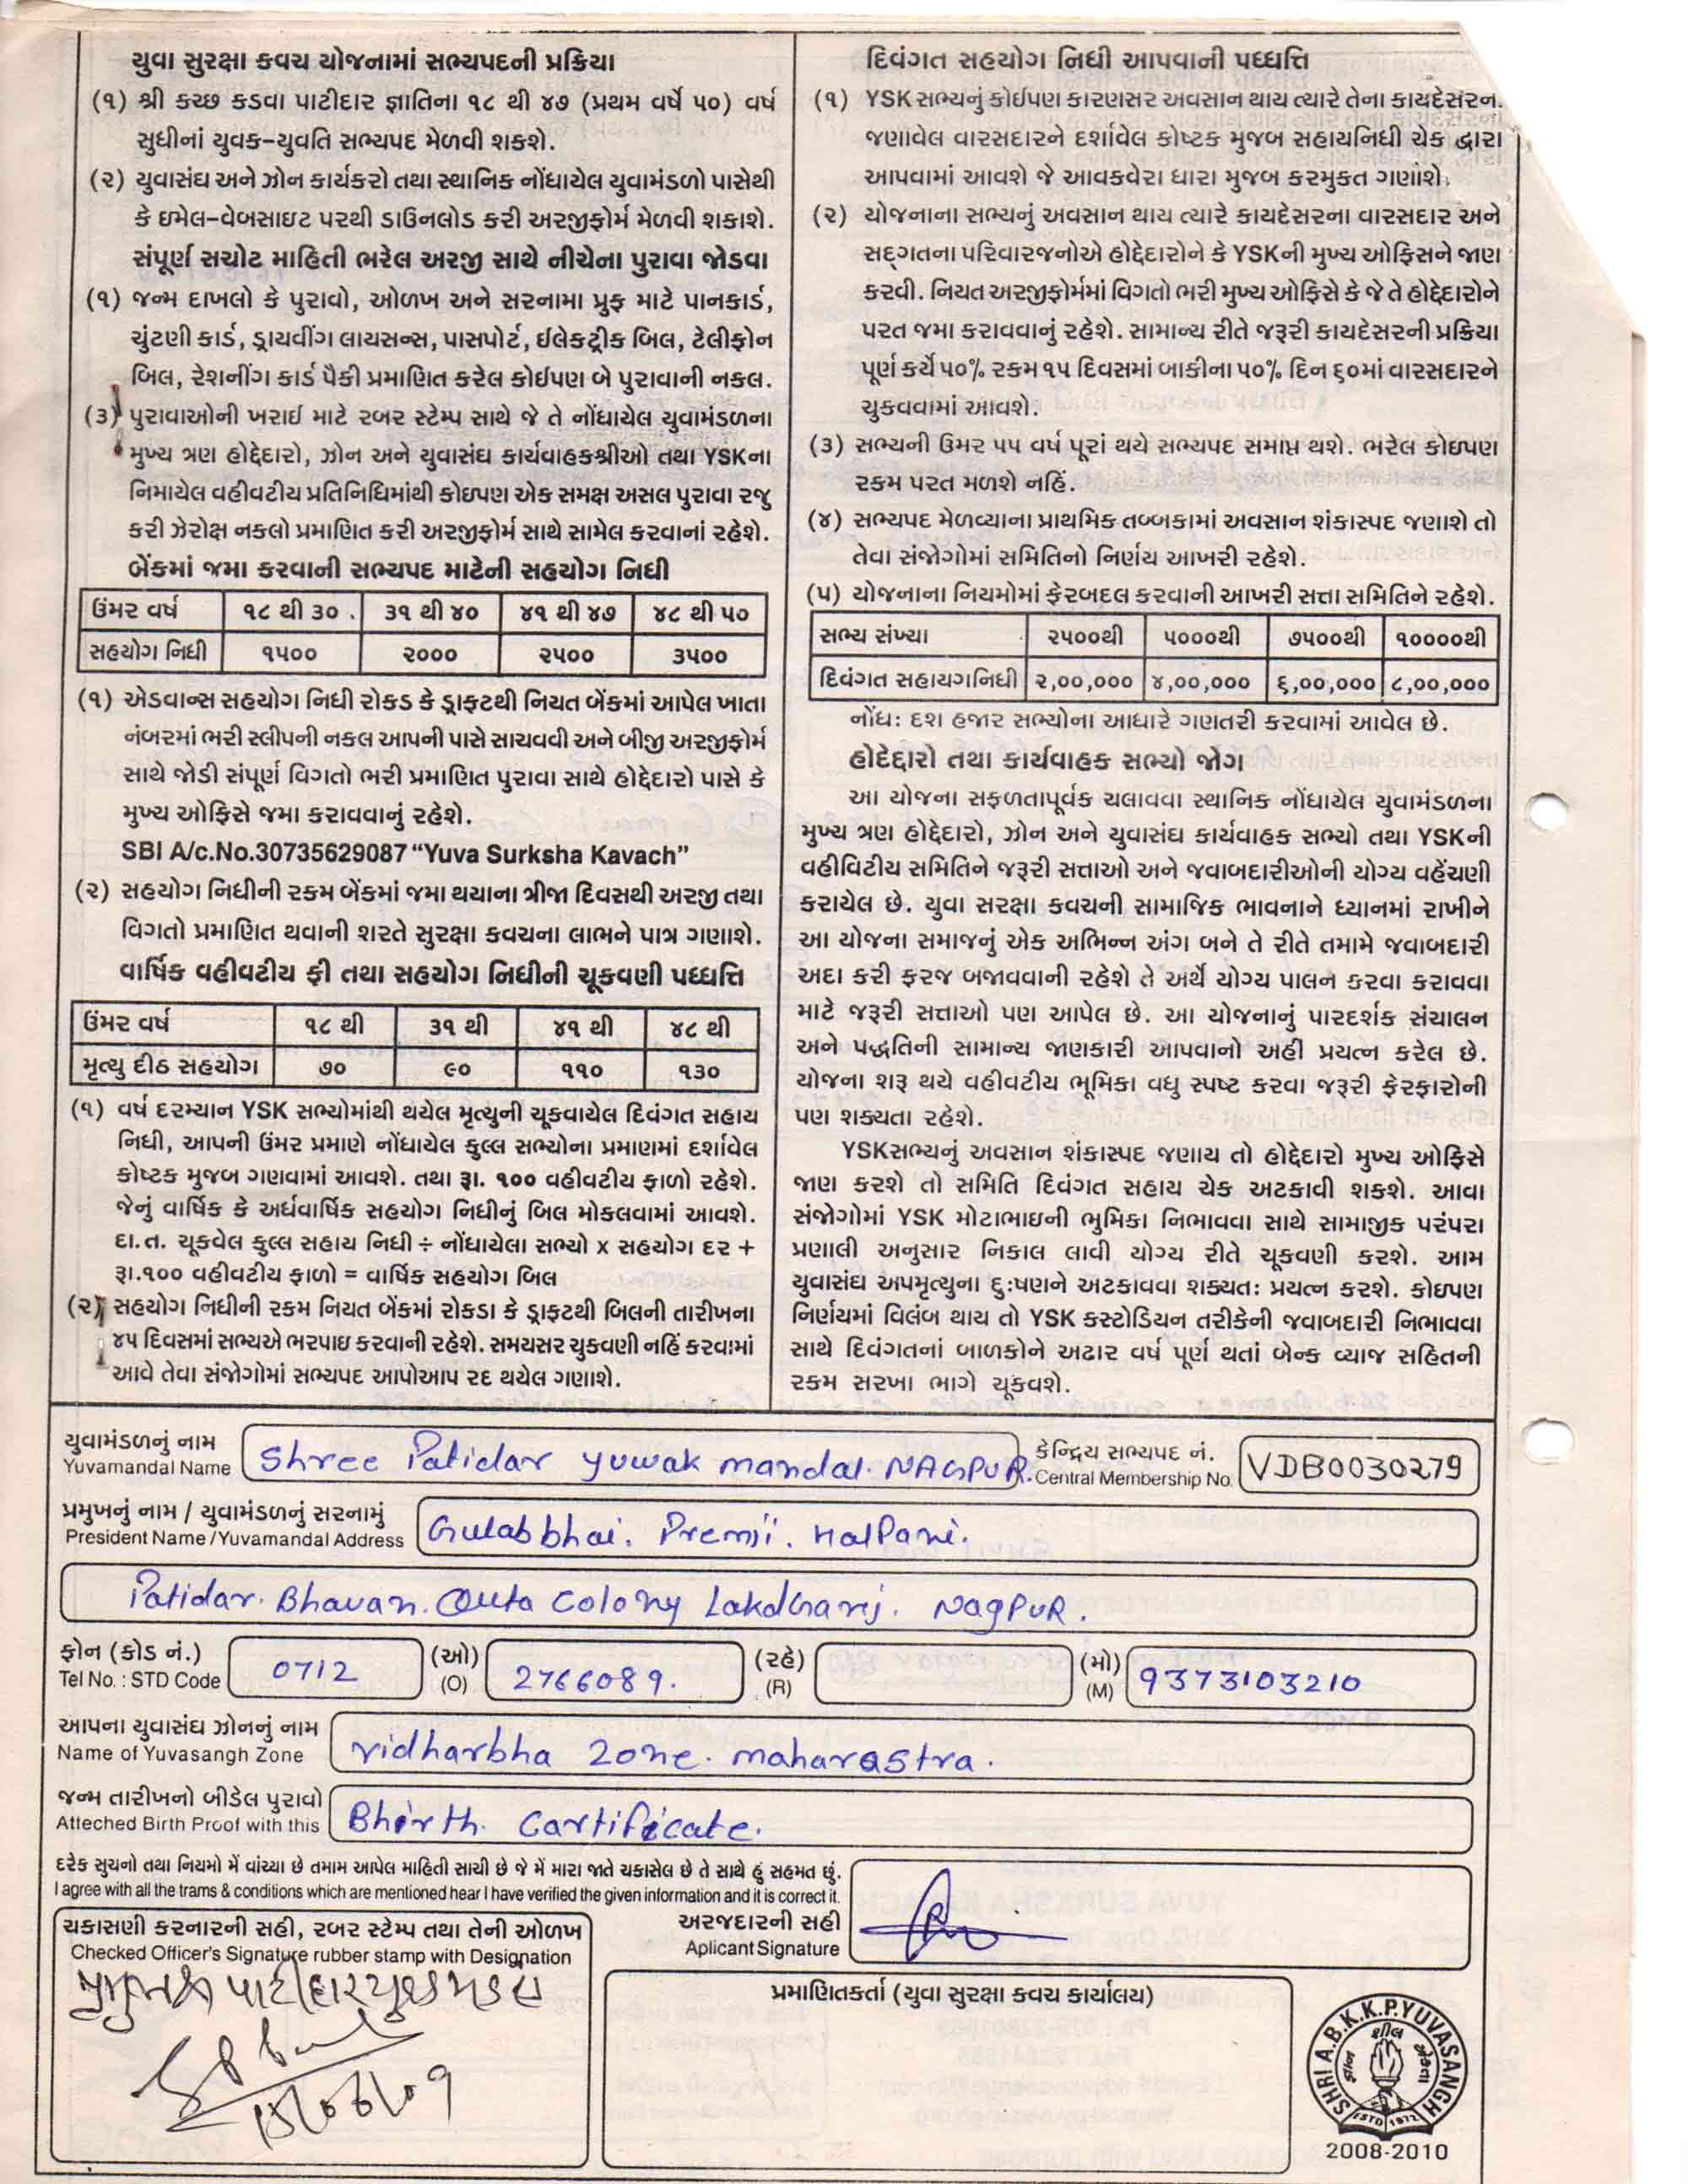 યુવા સુરક્ષા કવચ યોજનામાં સભ્યપદની પ્રક્રિયા
(૧) શ્રી કચ્છ કડવા પાટીદાર જ્ઞાતિના ૧૮ થી ૪૭ (પ્રથમ વર્ષે ૫૦) વર્ષ
સુધીનાં યુવક-યુવતિ સભ્યપદ મેળવી શકશે.
(૨) યુવાસંઘ અને ઝોન કાર્યકરો તથા સ્થાનિક નોંધાયેલ યુવામંડળો પાસેથી
કે ઇમેલ-વેબસાઇટ પરથી ડાઉનલોડ કરી અરજીફોર્મ મેળવી શકાશે.
સંપૂર્ણ સચોટ માહિતી ભરેલ અરજી સાથે નીચેના પુરાવા જોડવા
(૧) જન્મ દાખલો કે પુરાવો, ઓળખ અને સરનામા પ્રુફ માટે પાનકાર્ડ,
ચુંટણી કાર્ડ, ડ્રાયવીંગ લાયસન્સ, પાસપોર્ટ, ઈલેક્ટ્રીક બિલ, ટેલીફોન
બિલ, રેશનીંગ કાર્ડ પૈકી પ્રમાણિત કરેલ કોઈપણ બે પુરાવાની નકલ.
(૩) પુરાવાઓની ખરાઈ માટે રબર સ્ટેમ્પ સાથે જે તે નોંધાયેલ યુવામંડળના
મુખ્ય ત્રણ હોદ્દેદારો, ઝોન અને યુવાસંઘ કાર્યવાહકશ્રીઓ તથા YSKના
નિમાયેલ વહીવટીય પ્રતિનિધિમાંથી કોઇપણ એક સમક્ષ અસલ પુરાવા રજુ
કરી ઝેરોક્ષ નકલો પ્રમાણિત કરી અરજીફોર્મ સાથે સામેલ કરવાનાં રહેશે.
બેંકમાં જમા કરવાની સભ્યપદ માટેની સહયોગ નિધી
ઉંમર વર્ષ ૧૮ થી ૩૦ . ૩૧ થી ૪૦ ૪૧ થી ૪૭ ૪૮ થી ૫૦
સહયોગ નિધી ૧૫૦૦ ૨૦૦૦ ૨૫૦૦ ૩૫૦૦
(૧) એડવાન્સ સહયોગ નિધી રોકડ કે ડ્રાફ્ટથી નિયત બેંકમાં આપેલ ખાતા
નંબરમાં ભરી સ્લીપની નકલ આપની પાસે સાચવવી અને બીજી અરજીફોર્મ
સાથે જોડી સંપૂર્ણ વિગતો ભરી પ્રમાણિત પુરાવા સાથે હોદ્દેદારો પાસે કે
મુખ્ય ઓફિસે જમા કરાવવાનું રહેશે.
SBI A/c.No.30735629087 “Yuva Surksha Kavach”
(૨) સહયોગ નિધીની રકમ બેંકમાં જમા થયાના ત્રીજા દિવસથી અરજી તથા
વિગતો પ્રમાણિત થવાની શરતે સુરક્ષા કવચના લાભને પાત્ર ગણાશે.
વાર્ષિક વહીવટીય ફી તથા સહયોગ નિધીની ચૂકવણી પધ્ધતિ
ઉંમર વર્ષ ૧૮ થી ૩૧ થી ૪૧ થી ૪૮ થી
મૃત્યુ દીઠ સહયોગ ૭૦ ૯૦ ૧૧૦ ૧૩૦
(૧) વર્ષ દરમ્યાન YSK સભ્યોમાંથી થયેલ મૃત્યુની ચૂકવાયેલ દિવંગત સહાય
નિધી, આપની ઉંમર પ્રમાણે નોંધાયેલ કુલ્લ સભ્યોના પ્રમાણમાં દર્શાવેલ
કોષ્ટક મુજબ ગણવામાં આવશે. તથા રૂા. ૧૦૦ વહીવટીય ફાળો રહેશે.
જેનું વાર્ષિક કે અર્ધવાર્ષિક સહયોગ નિધીનું બિલ મોકલવામાં આવશે.
દા.ત. ચૂકવેલ કુલ્લ સહાય નિધી ÷ નોંધાયેલા સભ્યો x સહયોગ દર +
રૂા.૧૦૦ વહીવટીય ફાળો = વાર્ષિક સહયોગ બિલ
(૨) સહયોગ નિધીની રકમ નિયત બેંકમાં રોકડા કે ડ્રાફ્ટથી બિલની તારીખના
૪૫ દિવસમાં સભ્યએ ભરપાઇ કરવાની રહેશે. સમયસર ચુકવણી નહિં કરવામાં
આવે તેવા સંજોગોમાં સભ્યપદ આપોઆપ રદ થયેલ ગણાશે.
દિવંગત સહયોગ નિધી આપવાની પધ્ધતિ
(૧) YSK સભ્યનું કોઈપણ કારણસર અવસાન થાય ત્યારે તેના કાયદેસરના
જણાવેલ વારસદારને દર્શાવેલ કોષ્ટક મુજબ સહાયનિધી ચેક દ્વારા
આપવામાં આવશે જે આવકવેરા ધારા મુજબ કરમુક્ત ગણાશે.
(૨) યોજનાના સભ્યનું અવસાન થાય ત્યારે કાયદેસરના વારસદાર અને
સદ્ગતના પરિવારજનોએ હોદ્દેદારોને કે YSKની મુખ્ય ઓફિસને જાણ
કરવી. નિયત અરજીફોર્મમાં વિગતો ભરી મુખ્ય ઓફિસે કે જે તે હોદ્દેદારોને
પરત જમા કરાવવાનું રહેશે. સામાન્ય રીતે જરૂરી કાયદેસરની પ્રક્રિયા
પૂર્ણ કર્યે ૫૦% રકમ ૧૫ દિવસમાં બાકીના ૫૦% દિન ૬૦માં વારસદારને
ચુકવવામાં આવશે.
(૩) સભ્યની ઉમર ૫૫ વર્ષ પૂરાં થયે સભ્યપદ સમાપ્ત થશે. ભરેલ કોઇપણ
રકમ પરત મળશે નહિં.
(૪) સભ્યપદ મેળવ્યાના પ્રાથમિક તબ્બકામાં અવસાન શંકાસ્પદ જણાશે તો
તેવા સંજોગોમાં સમિતિનો નિર્ણય આખરી રહેશે.
(૫) યોજનાના નિયમોમાં ફેરબદલ કરવાની આખરી સત્તા સમિતિને રહેશે.
સભ્ય સંખ્યા ૨૫૦૦થી ૫૦૦૦થી ૭૫૦૦થી ૧૦૦૦૦થી
દિવંગત સહાયગનિધી ૨,૦૦,૦૦૦ ૪,૦૦,૦૦૦ ૬,૦૦,૦૦૦ ૮,૦૦,૦૦૦
નોંધ: દશ હજાર સભ્યોના આધારે ગણતરી કરવામાં આવેલ છે.
હોદેદ્દારો તથા કાર્યવાહક સભ્યો જોગ
આ યોજના સફળતાપૂર્વક ચલાવવા સ્થાનિક નોંધાયેલ યુવામંડળના
મુખ્ય ત્રણ હોદ્દેદારો, ઝોન અને યુવાસંઘ કાર્યવાહક સભ્યો તથા YSKની
વહીવિટીય સમિતિને જરૂરી સત્તાઓ અને જવાબદારીઓની યોગ્ય વહેંચણી
કરાયેલ છે. યુવા સરક્ષા કવચની સામાજિક ભાવનાને ધ્યાનમાં રાખીને
આ યોજના સમાજનું એક અભિન્ન અંગ બને તે રીતે તમામે જવાબદારી
અદા કરી ફરજ બજાવવાની રહેશે તે અર્થે યોગ્ય પાલન કરવા કરાવવા
માટે જરૂરી સત્તાઓ પણ આપેલ છે. આ યોજનાનું પારદર્શક સંચાલન
અને પદ્ધતિની સામાન્ય જાણકારી આપવાનો અહીં પ્રયત્ન કરેલ છે.
યોજના શરૂ થયે વહીવટીય ભૂમિકા વધુ સ્પષ્ટ કરવા જરૂરી ફેરફારોની
પણ શક્યતા રહેશે.
YSKસભ્યનું અવસાન શંકાસ્પદ જણાય તો હોદ્દેદારો મુખ્ય ઓફિસે
જાણ કરશે તો સમિતિ દિવંગત સહાય ચેક અટકાવી શકશે. આવા
સંજોગોમાં YSK મોટાભાઇની ભુમિકા નિભાવવા સાથે સામાજીક પરંપરા
પ્રણાલી અનુસાર નિકાલ લાવી યોગ્ય રીતે ચૂકવણી કરશે. આમ
યુવાસંઘ અપમૃત્યુના દુ:ષણને અટકાવવા શક્યત: પ્રયત્ન કરશે. કોઇપણ
નિર્ણયમાં વિલંબ થાય તો YSK કસ્ટોડિયન તરીકેની જવાબદારી નિભાવવા
સાથે દિવંગતનાં બાળકોને અઢાર વર્ષ પૂર્ણ થતાં બેન્ક વ્યાજ સહિતની
રકમ સરખા ભાગે ચૂકવશે.
યુવામંડળનું નામ Shree Patidar yuwak mandal. NAGPUR. કેન્દ્રિય સભ્યપદ નં. VDB0030279
Yuvamandal Name Central Membership No.
પ્રમુખનું નામ / યુવામંડળનું સરનામું Gulabbhai. Premji. Halpani.
President Name /Yuvamandal Address
Patidar. Bhavan. Quta Colony Lakdganj. NAGPUR.
ફોન (કોડ નં.) 0712 (ઓ) 2766089. (રહે) (મો) 9373103210
Tel No. : STD Code (O) (R) (M)
આપના યુવાસંઘ ઝોનનું નામ vidharbha zone. maharastra.
Name of Yuvasangh Zone
જન્મ તારીખનો બીડેલ પુરાવો Bhirth. Cartificate.
Atteched Birth Proof with this
દરેક સુચનો તથા નિયમો મેં વાંચ્યા છે તમામ આપેલ માહિતી સાચી છે જે મેં મારા જાતે ચકાસેલ છે તે સાથે હું સહમત છું.
I agree with all the trams & conditions which are mentioned hear I have verified the given information and it is correct it.
અરજદારની સહી
Aplicant Signature
ચકાસણી કરનારની સહી, રબર સ્ટેમ્પ તથા તેની ઓળખ
Checked Officer's Signature rubber stamp with Designation
15/06/09
પ્રમાણિતકર્તા (યુવા સુરક્ષા કવચ કાર્યાલય)
SHRI A.B.K.K.P.YUVASANGH
ESTD 1972
2008-2010